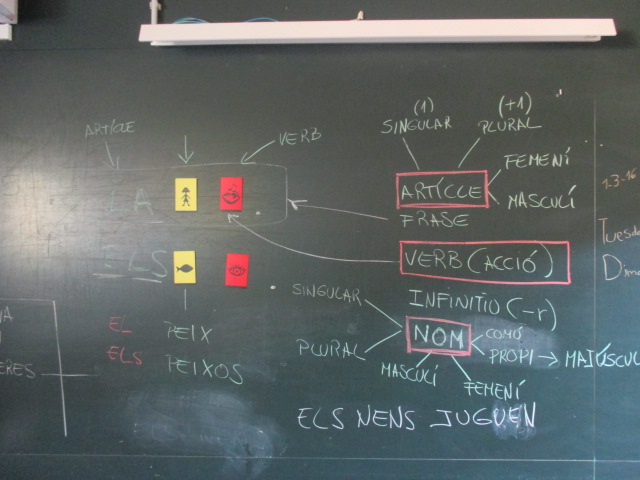 (1) (+1)
SINGULAR PLURAL
ARTICLE VERB
FEMENÍ
A ARTÍCLE MASCULÍ
FRASE
ELS VERB (ACCIÓ)
INFINITIO (-r)
SINGULAR
EL PEIX NOM COMÚ
PLURAL PROPI → MAJÚSCUL
ELS PEIXOS MASCULÍ
FEMENÍ
ELS NENS JUGUEN
1-3-16
Tuesda